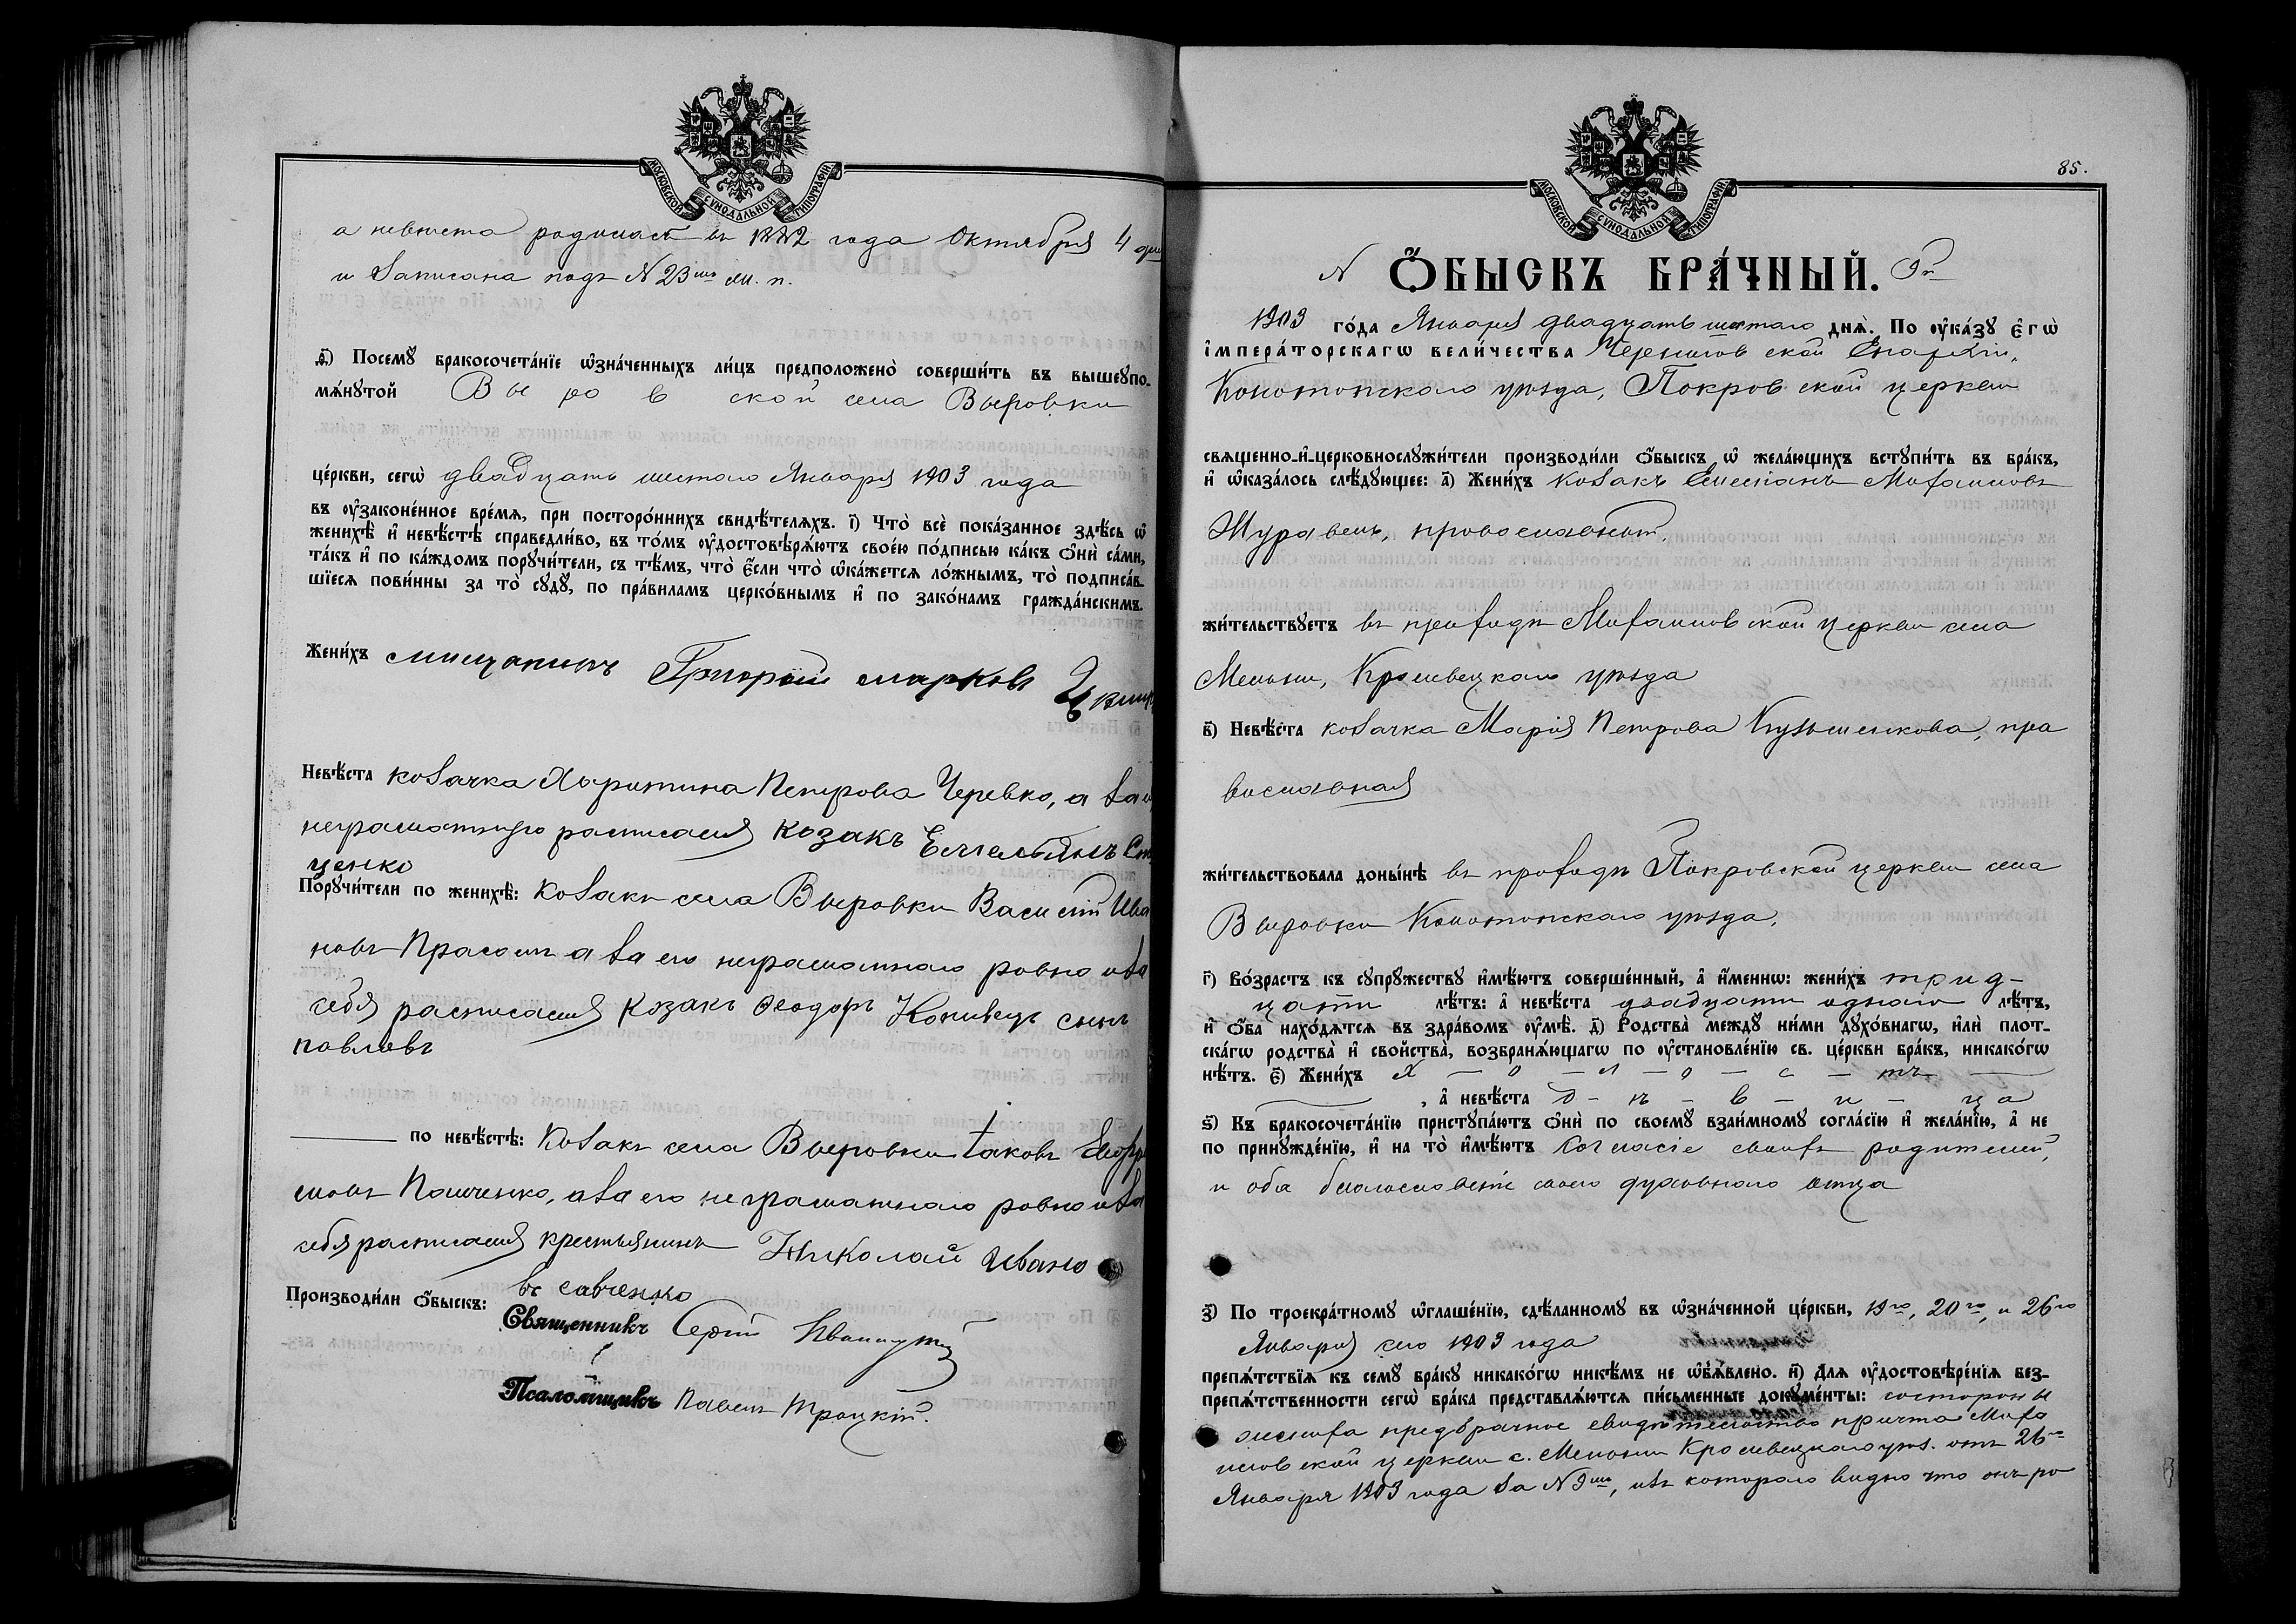 МОСКОВСКОЙ СѴНОДАЛЬНОЙ ТИПОГРАФІИ
а невѣста родилась въ 1882 года Октября 4 дня
и записана подъ N 23мъ ж. п.
д҃і) Посемꙋ̀ бракосочета́нїе ѡ҆зна́ченныхъ ли́цъ предположено̀ соверши́ть въ вышеꙋпо-
мѧ́нꙋтой Вы ро в ской села Выровки
це́ркви, сегѡ̀ двадцать шестого Января 1903 года
въ ᲂу҆законе́нное вре́мѧ, при посторо́ннихъ свидѣ́телѧхъ. і҃) Что̀ всѐ пока́занное здѣ́сь ѡ҆
женихѣ̀ и҆ невѣ́стѣ справедли́во, въ то́мъ ᲂу҆достовѣрѧ́ютъ свое́ю по́дписью ка́къ ѻ҆нѝ са́ми,
та́къ и҆ по ка́ждомъ порꙋчи́тели, съ тѣ́мъ, что̀ є҆́сли что̀ ѡ҆ка́жетсѧ ло́жнымъ, то̀ подписа́в-
шїесѧ пови́нны за то̀ сꙋдꙋ̀, по пра́виламъ церко́внымъ и҆ по зако́намъ гражда́нскимъ.
Жени́хъ мищанинъ Григорій марковъ
Невѣ́ста козачка Харитина Петрова Черевко, а за ея
неграмотную росписался козакъ Емельянъ
ценко
Порꙋчи́тели по женихѣ̀: Козакъ села Выровки Василій Ива
новъ Прасолъ а за его неграмотнаго ровно и за
себя росписался козакъ Феодоръ Копивецъ сынъ
павловъ
по невѣ́стѣ: Козакъ села Выровки Іаковъ
мовъ Пащенко, а за его неграмотнаго ровно и за
себя росписался крестьянинъ Николай Ивано
въ савченко
Производи́ли ѻ҆́быскъ:
Священникъ Сергій
Псаломщикъ Павелъ Троцкій.
МОСКОВСКОЙ СѴНОДАЛЬНОЙ ТИПОГРАФІИ
85.
N Ѻ҆́БЫСКЪ БРА́ЧНЫЙ. 9й
1903 го́да Января двадцать шестого днѧ̀. По ᲂу҆ка́зꙋ є҆гѡ̀
і҆мпера́торскагѡ вели́чества Чернигов ской Епархіи,
Конотопскаго уѣзда, Покров ской церкви
свѧщенно-и҆-церковнослꙋжи́тели производи́ли ѻ҆́быскъ ѡ҆ жела́ющихъ встꙋпи́ть въ бра́къ,
и҆ ѡ҆каза́лось слѣ́дꙋющее: а҃) Жени́хъ козакъ Емеліанъ Михаиловъ
Журавель, православный,
жи́тельствꙋетъ въ приходѣ Михаиловской церкви села
Мельни, Кролевецкаго уѣзда
в҃) Невѣ́ста козачка Марія Петрова Кузьменкова, пра
вославная
жи́тельствовала доны́нѣ въ приходѣ Покровской церкви села
Выровки Конотопскаго уѣзда,
г҃) Во́зрастъ къ сꙋпрꙋ́жествꙋ и҆мѣ́ютъ соверше́нный, а҆ и҆́меннѡ: жени́хъ трид-
цати лѣ́тъ: а҆ невѣ́ста двадцати одного лѣ́тъ,
и҆ ѻ҆́ба нахо́дѧтсѧ въ здра́вомъ ᲂу҆мѣ̀. д҃) Родства̀ междꙋ̀ ни́ми дꙋхо́внагѡ, и҆лѝ плот-
ска́гѡ родства̀ и҆ свойства̀, возбранѧ́ющагѡ по ᲂу҆становле́нїю св. це́ркви бра́къ, никако́гѡ
нѣ́тъ. є҃) Жени́хъ х - о - л - о - с - тъ
, а҆ невѣ́ста д - ѣ - в - и - ца
ѕ҃) Къ бракосочета́нїю пристꙋпа́ютъ ѻ҆нѝ по своемꙋ̀ взаи́мномꙋ согла́сїю и҆ жела́нїю, а҆ не
по принꙋжде́нїю, и҆ на то̀ и҆мѣ́ютъ согласіе своихъ родителей,
и оба благословеніе своего духовнаго отца
з҃) По троекра́тномꙋ ѡ҆глаше́нїю, сдѣ́ланномꙋ въ ѡ҆зна́ченной це́ркви, 19го, 20го, и 26го
Января сего 1903 года
препѧ́тствїѧ къ семꙋ̀ бра́кꙋ никако́гѡ никѣ́мъ не ѡ҆б̾ѧ́влено. и҃) Длѧ̀ ᲂу҆достовѣре́нїѧ без-
препѧ́тственности сегѡ̀ бра́ка представлѧ́ютсѧ пи́сьменные докꙋме́нты: состороны
жениха предбрачное свидѣтельство причта Миха
иловской церкви с. Мельни Кролевецкаго уѣз. отъ 26го
Января 1903 года за N 9мъ, изъ котораго видно что онъ ро